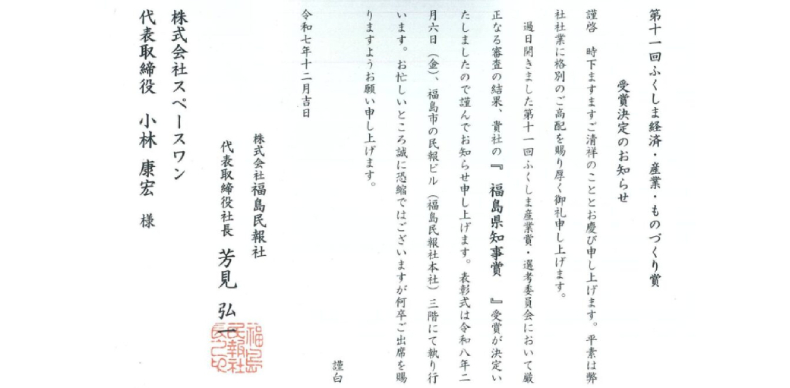 第十一回ふくしま経済・産業・ものづくり賞
受賞決定のお知らせ
謹啓　時下ますますご清祥のこととお慶び申し上げます。平素は弊
社社業に格別のご高配を賜り厚く御礼申し上げます。
過日開きました第十一回ふくしま産業賞・選考委員会において厳
正なる審査の結果、貴社の『　福島県知事賞　』受賞が決定い
たしましたので謹んでお知らせ申し上げます。表彰式は令和八年二
月六日（金）、福島市の民報ビル（福島民報社本社）三階にて執り行
います。お忙しいところ誠に恐縮ではございますが何卒ご出席を賜
りますようお願い申し上げます。
謹白
令和七年十二月吉日
株式会社福島民報社
代表取締役社長　芳見　弘一
福島民報社長之印
株式会社スペースワン
代表取締役　小林　康宏　様